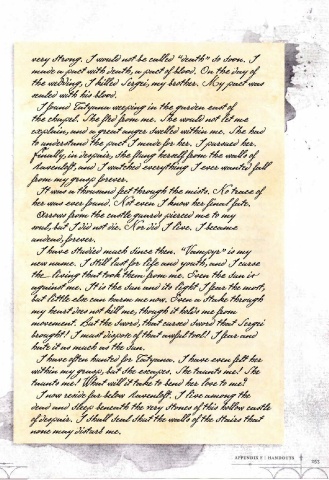 very strong. I would not be called "death" so soon. I
made a pact with death, a pact of blood. On the day of
the wedding, I killed Sergei, my brother. My pact was
sealed with his blood.
I found Tatyana weeping in the garden east of
the chapel. She fled from me. She would not let me
explain, and a great anger swelled within me. She had
to understand the pact I made for her. I pursued her.
Finally, in despair, she flung herself from the walls of
Ravenloft, and I watched everything I ever wanted fall
from my grasp forever.
It was a thousand feet through the mists. No trace of
her was ever found. Not even I know her final fate.
Arrows from the castle guards pierced me to my
soul, but I did not die. Nor did I live. I became
undead, forever.
I have studied much since then. "Vampyr" is my
new name. I still lust for life and youth, and I curse
the living that took them from me. Even the sun is
against me. It is the sun and its light I fear the most,
but little else can harm me now. Even a stake through
my heart does not kill me, though it holds me from
movement. But the sword, that cursed sword that Sergei
brought! I must dispose of that awful tool! I fear and
hate it as much as the sun.
I have often hunted for Tatyana. I have even felt her
within my grasp, but she escapes. She taunts me! She
taunts me! What will it take to bend her love to me?
I now reside far below Ravenloft. I live among the
dead and sleep beneath the very stones of this hollow castle
of despair. I shall seal shut the walls of the stairs that
none may disturb me.
APPENDIX F | HANDOUTS